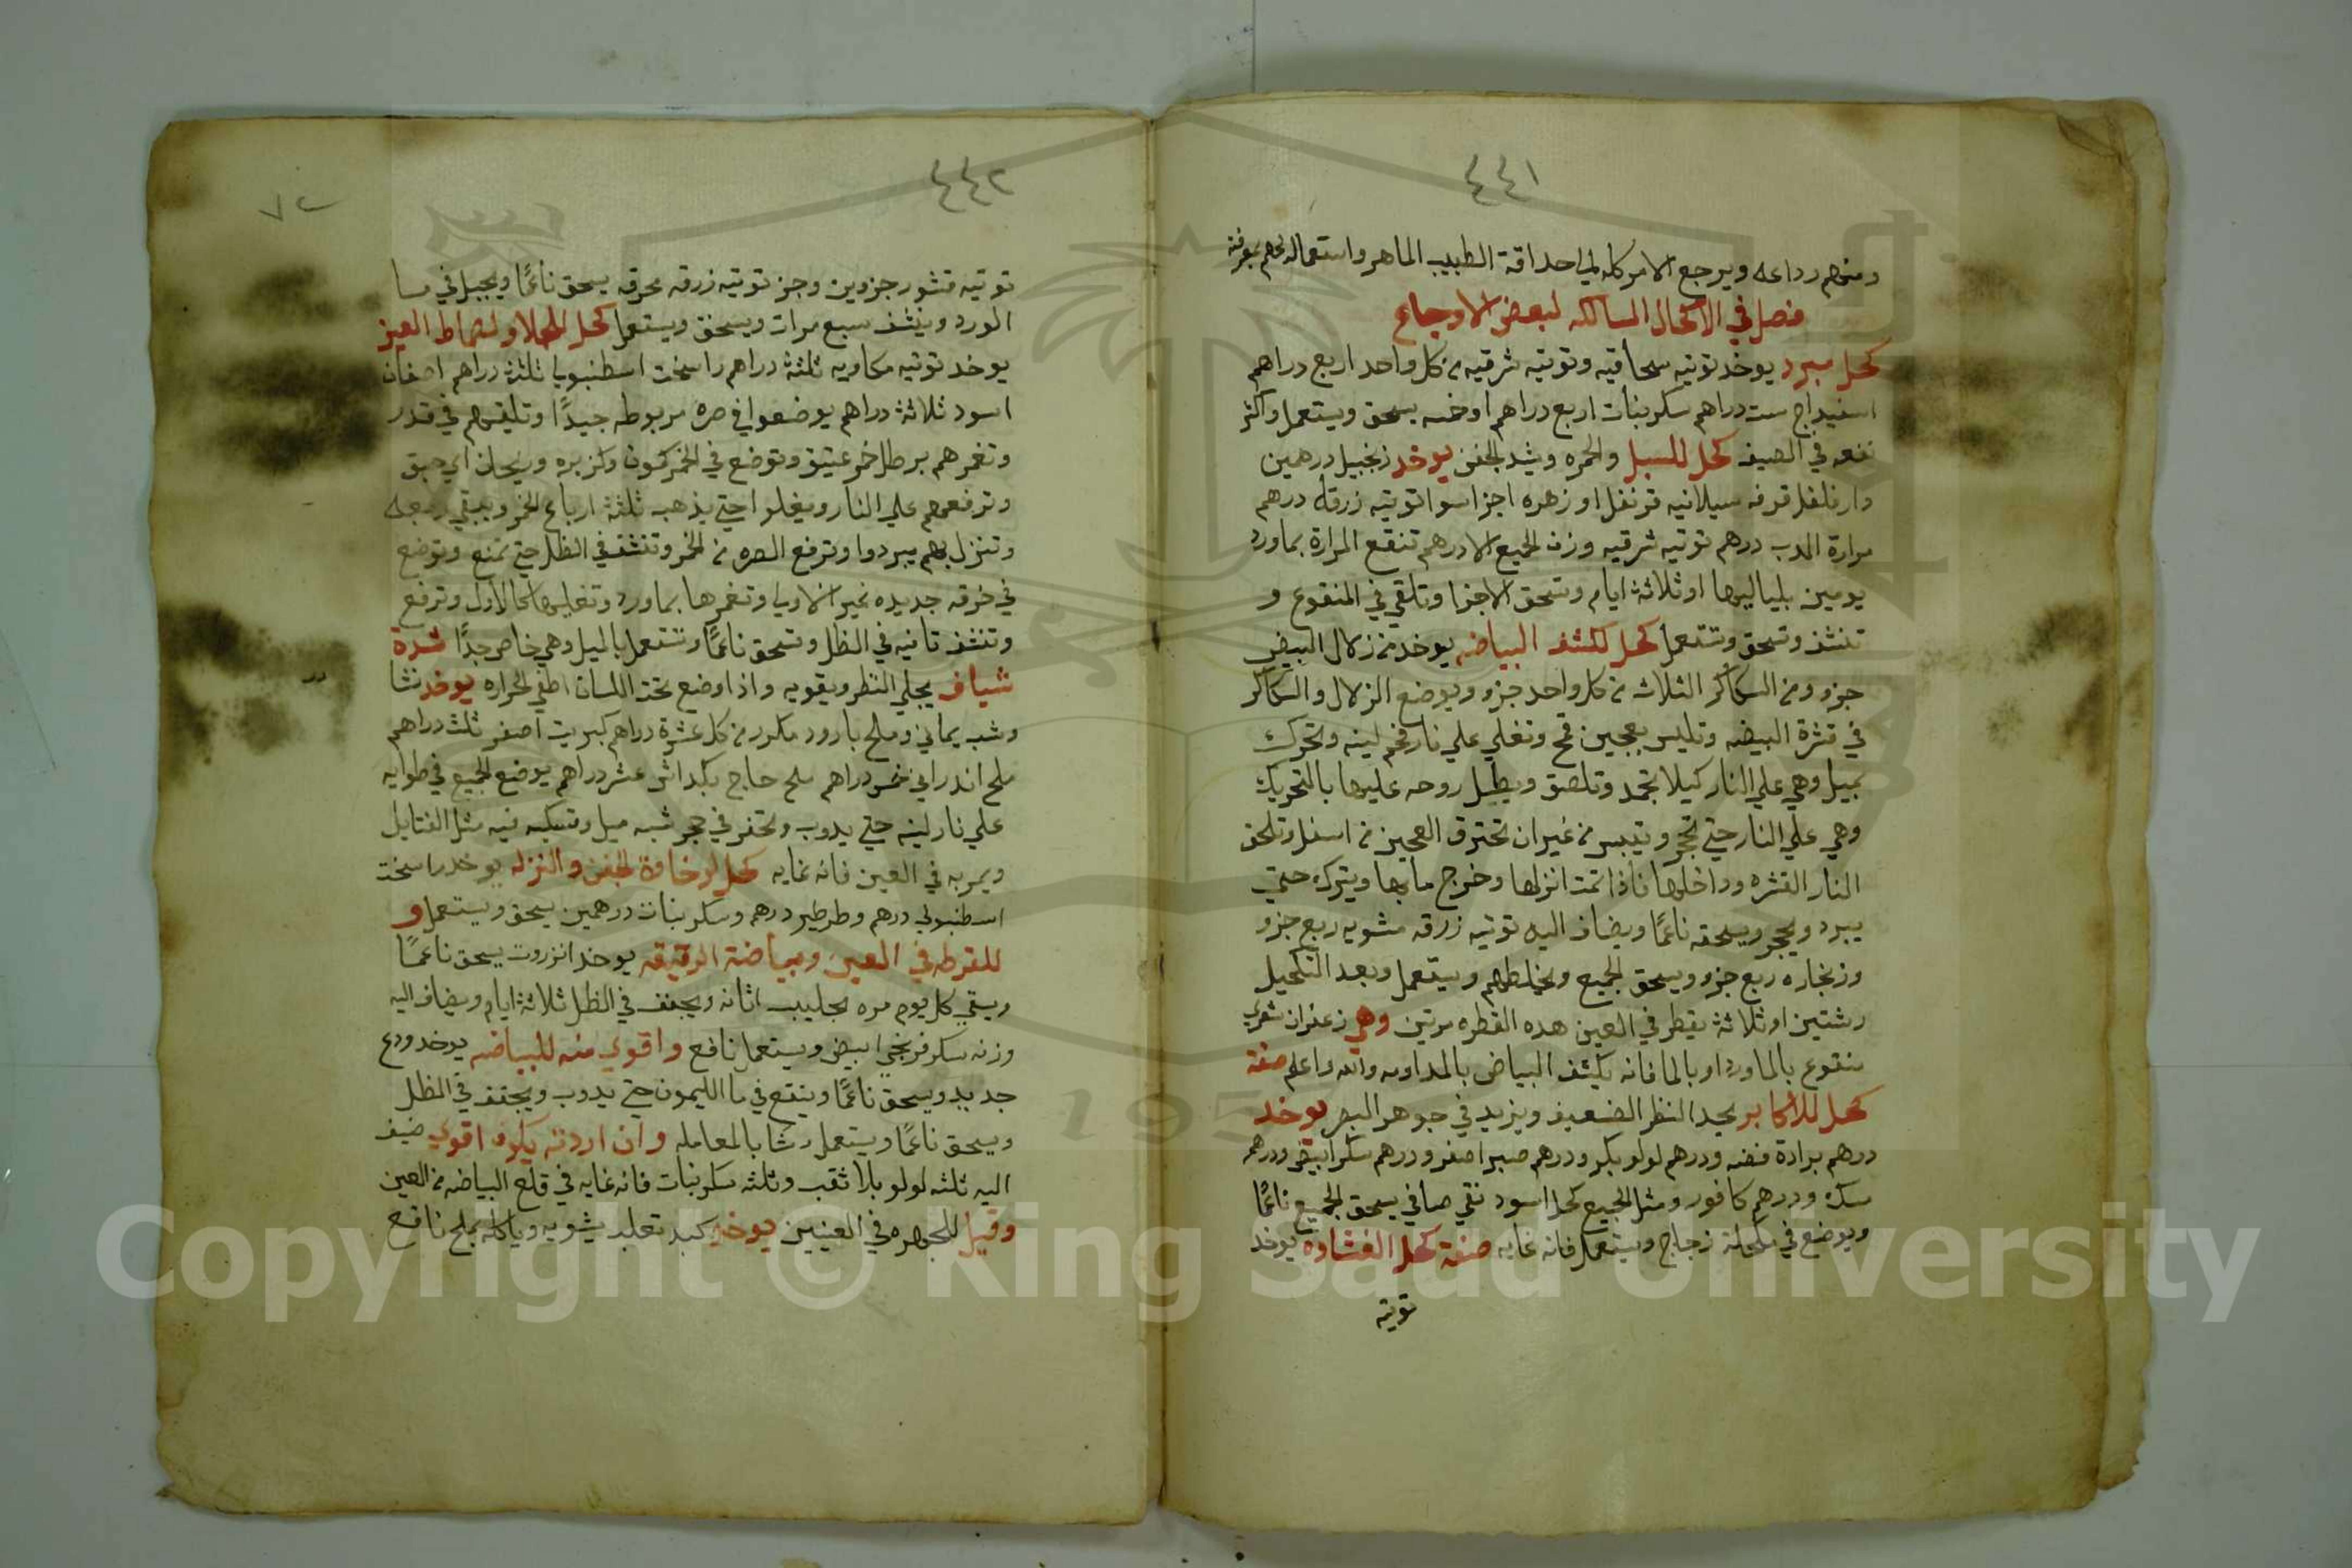 ٤٤١
ومنهم رداعه ويرجع الامر كله الي احداقة الطبيب الماهر واستعماله لهم بمعرفته
فصل في الاكحال السالكه لبعض الاوجاع
كحل مبرد يوخد توتيه سحاقيه وتوتيه شرقيه من كل واحد اربع دراهم
اسفيداج ست دراهم سكر بنات اربع دراهم اوخمسه يسحق ويستعمل واكثر
نفعه في الصيف كحل للسبل والحمره ويشد الجفن يوخد زنجبيل درهمين
دار فلفل قرفه سيلانيه قرنفل او زهره اجزا سوا توتيه زرقه درهم
مرارة الدب درهم توتيه شرقيه وزن الجميع الا درهم تنقع المرارة بماورد
يومين بلياليها او ثلاثة ايام وتسحق الاجزا وتلقي في المنقوع و
تنشف وتسحق وتستعمل كحل لكشف البياض يوخد من زلال البيض
جزو ومن السكاكر الثلاث من كل واحد جزو ويوضع الزلال والسكاكر
في قشرة البيضه وتلبس بعجين قمح وتغلي علي نار فحم لينه وتحرك
بميل وهي علي النار كيلا تجمد وتلصق ويطيل روحه عليها بالتحريك
وهي علي النار حتي تحجر وتيبس من غيران تحترق العجين من اسفل وتلحق
النار القشره وداخلها فاذا تمت انزلها وخرج مابها ويتركه حتي
يبرد ويحجر ويسحقه ناعمًا ويضاف اليه توتيه زرقه مشويه ربع جزو
وزنجاره ربع جزو ويسحق الجميع ويخلطهم ويستعمل وبعد التكحيل
رشتين او ثلاثة يقطر في العين هده القطره مرتين وهي زعفران شعري
منقوع بالماورد او بالما فانه يكشف البياض بالمداومه والله واعلم صفة
كحل للاكابر يحد النظر الضعيف ويزيد في جوهر البصر يوخد
درهم برادة فضه ودرهم لولو بكر ودرهم صبر اصفر ودرهم سكر ابيض ودرهم
مسك ودرهم كافور ومثل الجميع كحل اسود نقي صافي يسحق الجميع ناعمًا
ويوضع في مكحلة زجاج ويستعمل فانه غايه صفة كحل الغشاوه يوخد
توتيه
٤٤٢
٧٢
توتيه قشور جزوين وجز توتيه زرقه محرقه يسحق ناعمًا ويجبل في ما
الورد وينشف سبع مرات ويسحق ويستعمل كحل للجلا ولسماط العين
يوخد توتيه مكاويه ثلثة دراهم راسخت اسطنبوليا ثلثة دراهم اصفان
اسود ثلاثة دراهم يوضعوا في صره مربوطه جيدًا وتلقيهم في قدر
وتغمرهم برطل خمر عتيق وتوضع في الخمر كمون وكزبره وريحان اي حبق
وترفعهم علي النار ويغلوا حتي يذهب ثلثة ارباع الخمر ويبقي ربعه
وتنزل بهم يبردوا وترفع الصره من الخمر وتنشف في الظل حتي تمنع وتوضع
في خرقه جديده غير الاوليا وتغمرها بماورد وتغليها كالاول وترفع
وتنشف تانيه في الظل وتسحق ناعمًا وتستعمل بالميل وهي خاص جدًا
شياف يجلي النظر ويقويه واذا وضع تحت اللسان اطفي الحراره يوخد نشا
وشب يماني وملح بارود مكرر من كل عشرة دراهم كبريت اصفر ثلث دراهم
ملح اندراني خمس دراهم ملح حاج بكداش عشر دراهم يوضع الجميع في طوايه
علي نار لينه حتي يدوب وتحفر في حجر شبه ميل وتسكبه فيه مثل الفتايل
ويمر به في العين فانه غايه كحل لرخاوة الجفن والنزله يوخد راسخت
اسطنبولي درهم وطرطير درهم وسكر بنات درهمين يسحق ويستعمل و
للقرطه في العين وبياضة الرقيقه يوخد انزروت يسحق ناعمًا
ويسقي كل يوم مره بحليب اتانه ويجفف في الظل ثلاثة ايام ويضاف اليه
وزنه سكر فرنجي ابيض ويستعمل نافع واقوي منه للبياض يوخد ودع
جديد ويسحق ناعمًا وينقع في ما الليمون حتي يدوب ويجفف في الظل
ويسحق ناعمًا ويستعمل رشا بالمعامله وان اردته يكون اقوي ضيف
اليه ثلثه لولو بلا ثقب وثلثه سكر نبات فانه غايه في قلع البياض من العين
وقيل للجهره في العينين يوخد كبد ثعلب يشويه وياكله بملح نافع
Copyright © King Saud University
195